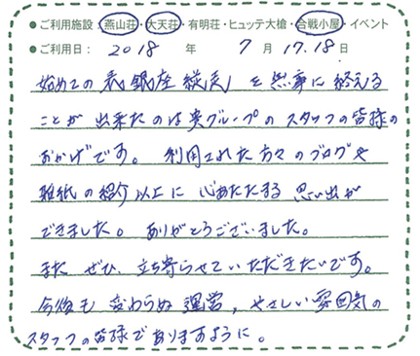 ● ご利用施設：燕山荘・大天荘・有明荘・ヒュッテ大槍・合戦小屋・イベント
● ご利用日： 2018 年 7 月 17.18 日
始めての 表銀座縦走 を 無事に 終える
ことが 出来たのは 貴グループの スタッフの皆様の
おかげです。 利用された方々の ブログや
雑紙の紹介以上に 心あたたまる 思い出が
できました。 ありがとうございました。
また ぜひ、立ち寄らせていただきたいです。
今後も 変わらぬ 運営、やさしい 雰囲気の
スタッフの皆様でありますように。